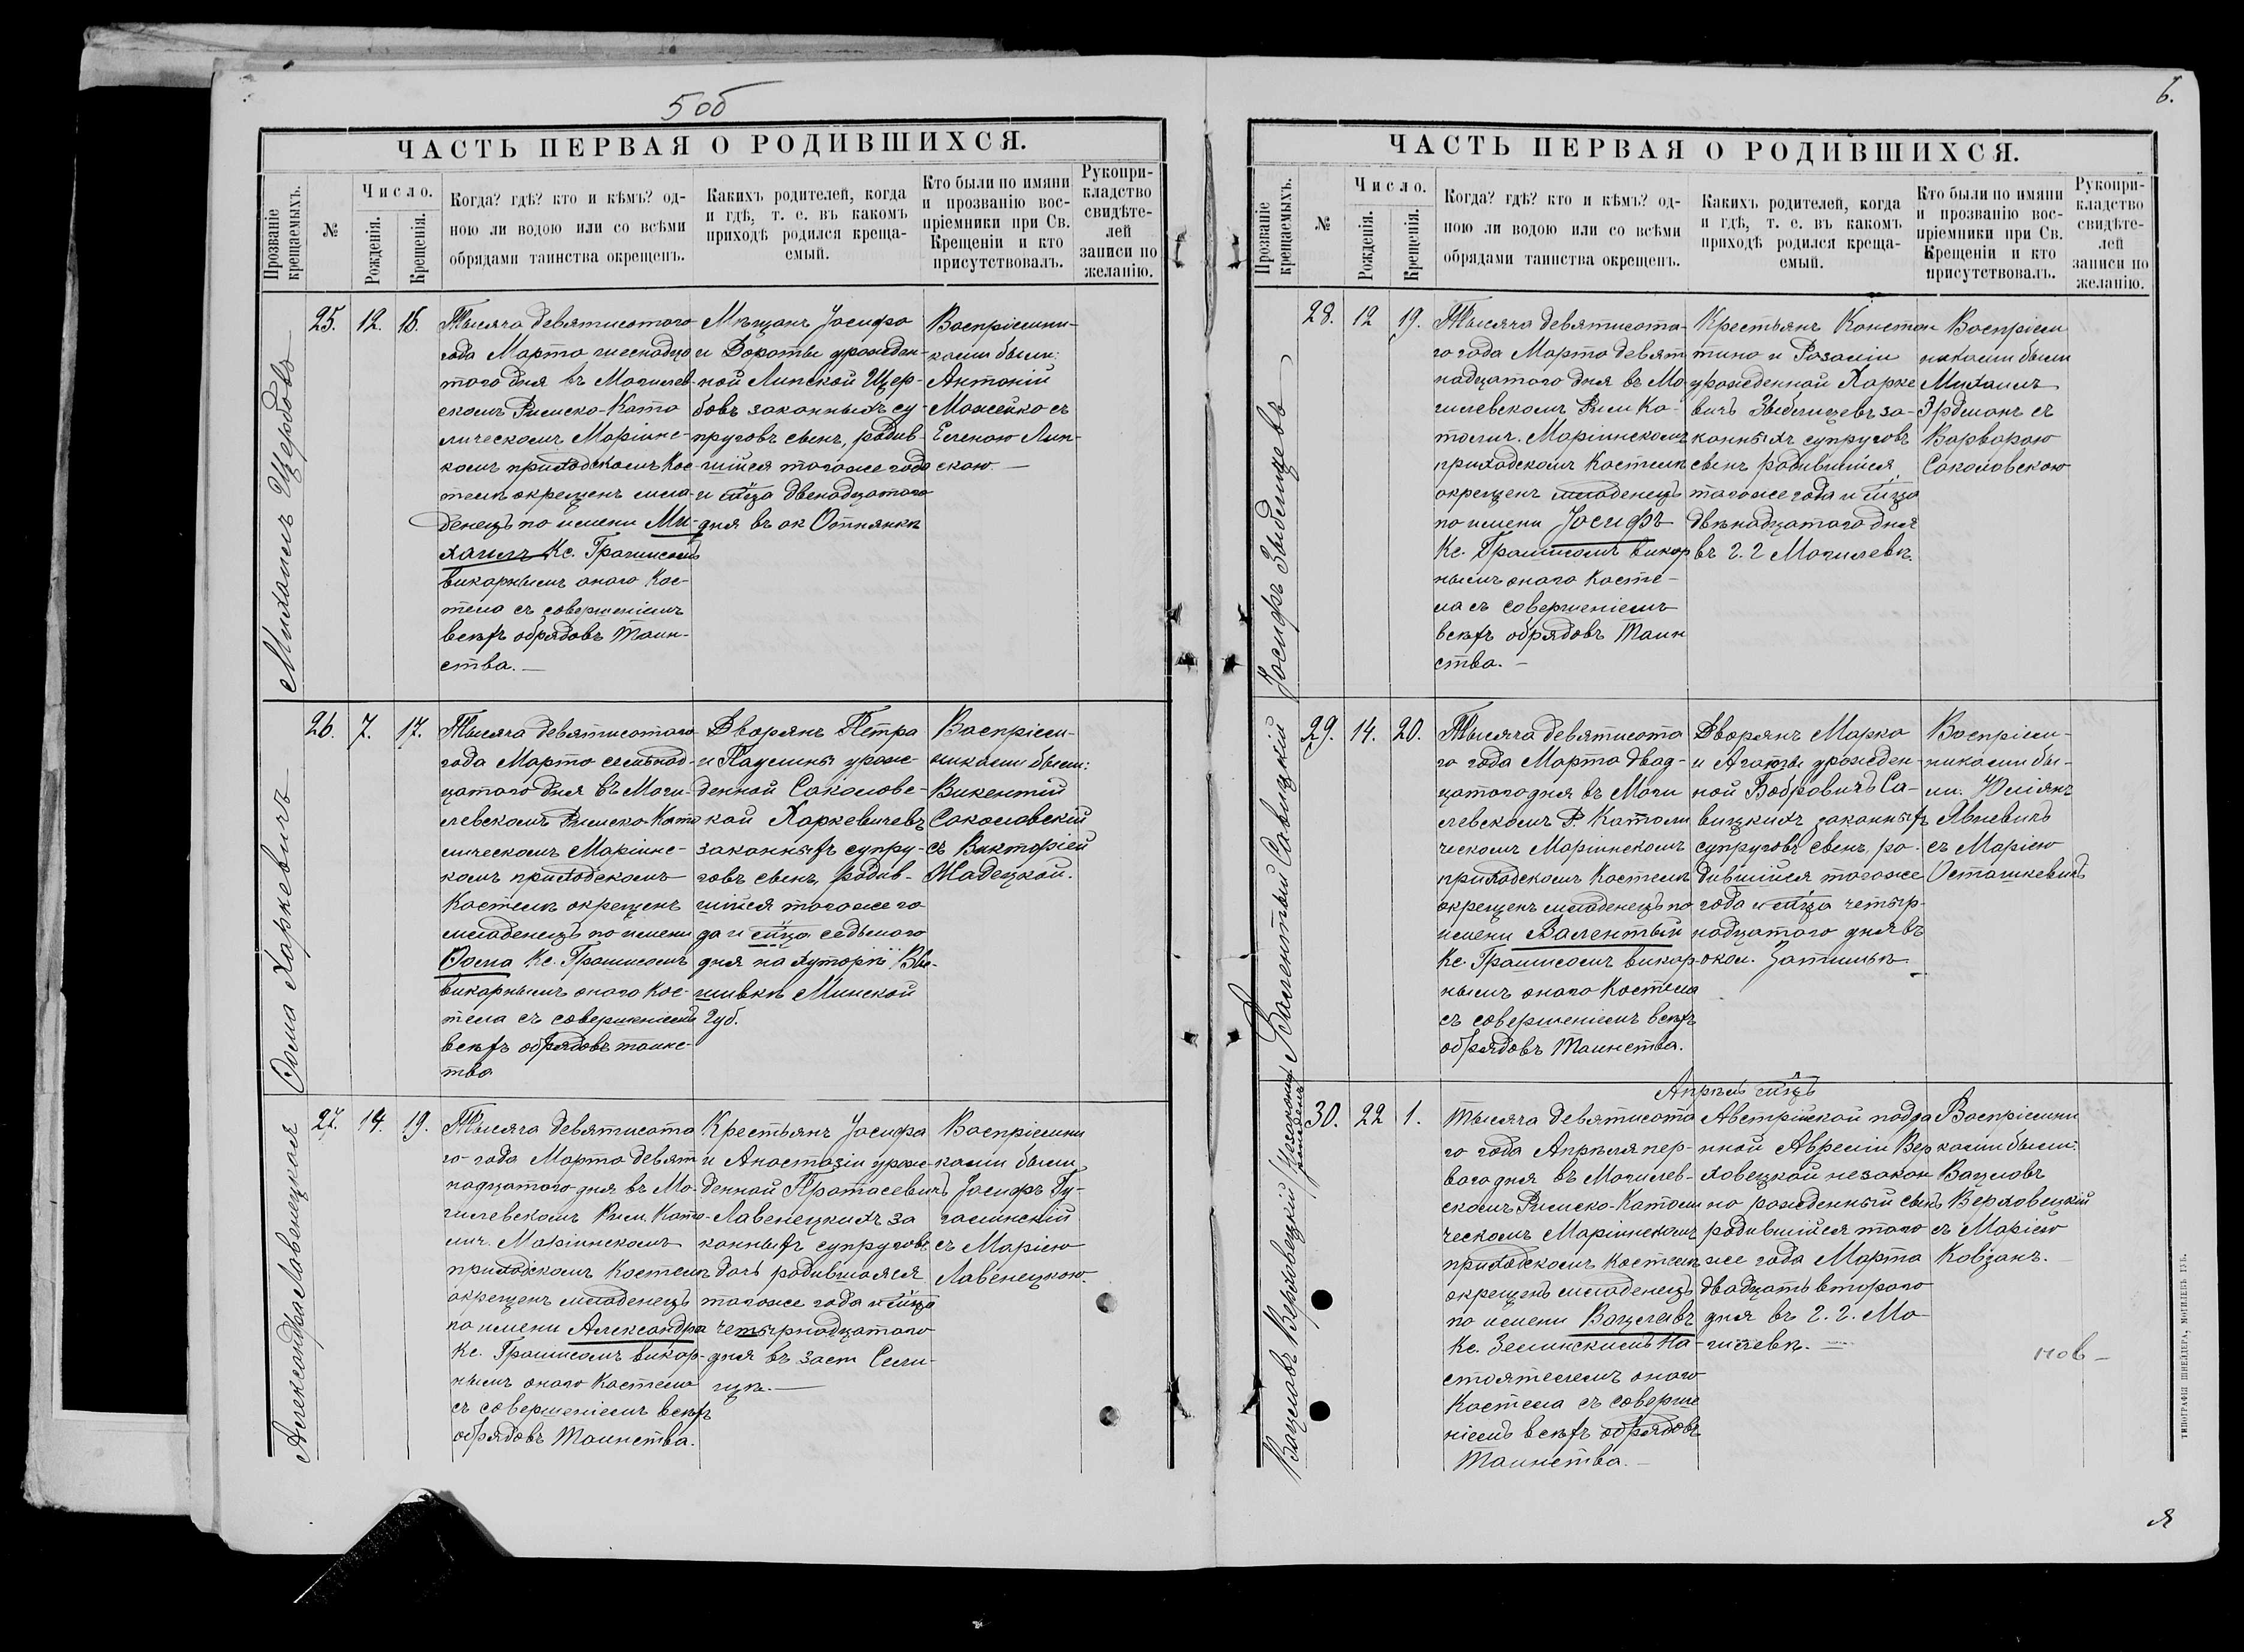 5 об
ЧАСТЬ ПЕРВАЯ О РОДИВШИХСЯ.
Прозваніе крещаемыхъ.
№
Число.
Рожденія.
Крещенія.
Когда? гдѣ? кто и кѣмъ? од-
ною ли водою или со всѣми
обрядами таинства окрещенъ.
Какихъ родителей, когда
и гдѣ, т. е. въ какомъ
приходѣ родился креща-
емый.
Кто были по имяни
и прозванію вос-
пріемники при Св.
Крещеніи и кто
присутствовалъ.
Рукопри-
кладство
свидѣте-
лей
записи по
желанію.
Михаилъ Щербовъ
25. 12. 16.
Тысяча девятисотаго
года Марта шеснадца
таго дня въ Могилев-
скомъ Римско-Като
лическомъ Маріинс-
комъ приходскомъ Кос
телѣ окрещенъ мла-
денецъ по имени Ми-
хаилъ Кс.
викарнымъ онаго Кос-
тела съ совершеніемъ
всѣхъ обрядовъ Таин-
ства. —
Мѣщанъ Іосифа
и Дороты урожден-
ной Липской Щер-
бовъ законныхъ су-
пруговъ сынъ, родив-
шійся тогоже года
и мѣца двенадцатаго
дня въ ок
Воспріемни-
ками были:
Антоній
Можейко съ
Еленою Лип-
скою. —
Ѳома Харкевичъ
26. 7. 17.
Тысяча девятисотаго
года Марта семьнад-
цатаго дня въ Моги-
левскомъ Римско-Като
лическомъ Маріинс-
комъ приходскомъ
Костелѣ окрещенъ
младенецъ по имени
Ѳома Кс.
викарнымъ онаго Кос-
тела съ совершеніемъ
всѣхъ обрядовъ таинс-
тва
Дворянъ Петра
и Паулины урож-
денной Соколовс-
кой Харкевичевъ
законныхъ супру-
говъ сынъ, родив-
шійся тогоже го
да и мѣца седьмаго
дня на хуторѣ Вы-
шивкѣ Минской
Губ.
Воспріем-
никами были:
Викентій
Соколовскій
съ Викторіей
Жадецкой.
Александра Лавенецкая
27. 14. 19.
Тысяча девятисота
го года Марта девят
надцатаго дня въ Мо-
гилевскомъ Рим. Като-
лич. Маріинскомъ
приходскомъ Костелѣ
окрещенъ младенецъ
по имени Александра
Кс. викар-
нымъ онаго Костела
съ совершеніемъ всѣхъ
обрядовъ Таинства.
Крестьянъ Іосифа
и Анастазіи урож-
денной Протасевичъ
Лавенецкихъ за
конныхъ супруговъ
дочь родившаяся
тогоже года и мѣца
четырнадцатаго
дня въ заст Сели-
щѣ. —
Воспріемни
ками были
Іосифъ Гу-
галинскій
съ Маріею
Лавенецкою.
6.
ЧАСТЬ ПЕРВАЯ О РОДИВШИХСЯ.
Прозваніе крещаемыхъ.
№
Число.
Рожденія.
Крещенія.
Когда? гдѣ? кто и кѣмъ? од-
ною ли водою или со всѣми
обрядами таинства окрещенъ.
Какихъ родителей, когда
и гдѣ, т. е. въ какомъ
приходѣ родился креща-
емый.
Кто были по имяни
и прозванію вос-
пріемники при Св.
Крещеніи и кто
присутствовалъ.
Рукопри-
кладство
свидѣте-
лей
записи по
желанію.
Іосифъ Зыблицевъ
28. 12 19.
Тысяча девятисота-
го года Марта девят
надцатаго дня въ Мо-
гилевскомъ Рим Ка-
толич. Маріинскомъ
приходскомъ Костелѣ
окрещенъ младенецъ
по имени Іосифъ
Кс. викар
нымъ онаго Косте-
ла съ совершеніемъ
всѣхъ обрядовъ Таин
ства. —
Крестьянъ Констан
тина и Розаліи
урожденной Харке
вичъ Зыблицевъ за-
конныхъ супруговъ
сынъ родившійся
тогоже года и мѣца
двѣнадцатаго дня
въ г. г Могилевѣ.
Воспріем
никами были
Михаилъ
Эрдманъ съ
Варварою
Соколовскою
Валентый Савицкій
29. 14. 20.
Тысяча девятисота
го года Марта двад-
цатаго дня въ Моги
левскомъ Р. Католи
ческомъ Маріинскомъ
приходскомъ Костелѣ
окрещенъ младенецъ по
имени Валентый
Кс. викар-
нымъ онаго Костела
съ совершеніемъ всѣхъ
обрядовъ Таинства.
Дворянъ Марка
и Агаѳы урожден-
ной Бобровичъ Са-
вицкихъ законныхъ
супруговъ сынъ, ро-
дившійся тогоже
года и мѣца четыр-
надцатаго дня въ
окол. Затишьѣ
Воспріем-
никами бы-
ли: Юліянъ
Явневичъ
съ Маріею
Осташкевичъ
Апрѣль мѣцъ
Вацлавъ Верховецкій
Незаконно рожденъ
30. 22 1.
Тысяча девятисота
го года Апрѣля пер-
ваго дня въ Могилев-
скомъ Римско-Католи
ческомъ Маріинскомъ
приходскомъ Костелѣ
окрещенъ младенецъ
по имени Вацлавъ
Кс. Зелинскимъ На-
стоятелемъ онаго
Костела съ соверше
ніемъ всѣхъ обрядовъ
Таинства. —
Австрійской подда
нной Авреліи Вер
ховецкой незакон
но рожденный сынъ
родившійся того
же года Марта
двадцать втораго
дня въ г. г. Мо
гилевѣ. —
Воспріемни
ками были:
Вацлавъ
Верховецкій
съ Маріею
Ковзанъ.
ТИПОГРАФІЯ ШНЕЙДЕРА, МОГИЛЕВЪ ГУБ.